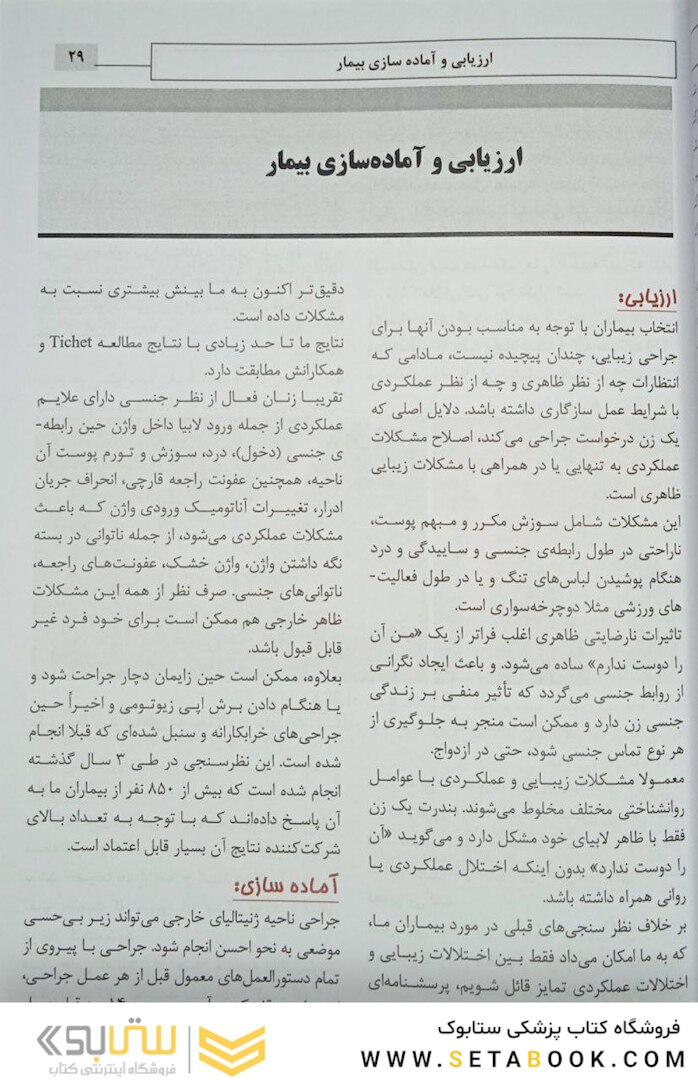 ارزیابی و آماده سازی بیمار
۲۹
ارزیابی و آماده‌سازی بیمار
ارزیابی:
انتخاب بیماران با توجه به مناسب بودن آنها برای
جراحی زیبایی، چندان پیچیده نیست، مادامی که
انتظارات چه از نظر ظاهری و چه از نظر عملکردی
با شرایط عمل سازگاری داشته باشد. دلایل اصلی که
یک زن درخواست جراحی می‌کند، اصلاح مشکلات
عملکردی به تنهایی یا در همراهی با مشکلات زیبایی
ظاهری است.
این مشکلات شامل سوزش مکرر و مبهم پوست،
ناراحتی در طول رابطه‌ی جنسی و ساییدگی و درد
هنگام پوشیدن لباس‌های تنگ و یا در طول فعالیت-
های ورزشی مثلا دوچرخه‌سواری است.
تاثیرات نارضایتی ظاهری اغلب فراتر از یک «من آن
را دوست ندارم» ساده می‌شود. و باعث ایجاد نگرانی
از روابط جنسی می‌گردد که تأثیر منفی بر زندگی
جنسی زن دارد و ممکن است منجر به جلوگیری از
هر نوع تماس جنسی شود، حتی در ازدواج.
معمولا مشکلات زیبایی و عملکردی با عوامل
روانشناختی مختلف مخلوط می‌شوند. بندرت یک زن
فقط با ظاهر لابیای خود مشکل دارد و می‌گوید «آن
را دوست ندارد» بدون اینکه اختلال عملکردی یا
روانی همراه داشته باشد.
بر خلاف نظر سنجی‌های قبلی در مورد بیماران ما،
که به ما امکان می‌داد فقط بین اختلالات زیبایی و
اختلالات عملکردی تمایز قائل شویم، پرسشنامه‌ای
دقیق‌تر اکنون به ما بینش بیشتری نسبت به
مشکلات داده است.
نتایج ما تا حد زیادی با نتایج مطالعه Tichet و
همکارانش مطابقت دارد.
تقریبا زنان فعال از نظر جنسی دارای علایم
عملکردی از جمله ورود لابیا داخل واژن حین رابطه-
ی جنسی (دخول)، درد، سوزش و تورم پوست آن
ناحیه، همچنین عفونت راجعه قارچی، انحراف جریان
ادرار، تغییرات آناتومیک ورودی واژن که باعث
مشکلات عملکردی می‌شود، از جمله ناتوانی در بسته
نگه داشتن واژن، واژن خشک، عفونت‌های راجعه،
ناتوانی‌های جنسی. صرف نظر از همه این مشکلات
ظاهر خارجی هم ممکن است برای خود فرد غیر
قابل قبول باشد.
بعلاوه، ممکن است حین زایمان دچار جراحت شود و
یا هنگام دادن برش اپی زیوتومی و اخیراً حین
جراحی‌های خرابکارانه و سنبل شده‌ای که قبلا انجام
شده است. این نظرسنجی در طی ۳ سال گذشته
انجام شده است که بیش از ۸۵۰ نفر از بیماران ما به
آن پاسخ داده‌اند که با توجه به تعداد بالای
شرکت‌کننده نتایج آن بسیار قابل اعتماد است.
آماده سازی:
جراحی ناحیه ژنیتالیای خارجی می‌تواند زیر بی‌حسی
موضعی به نحو احسن انجام شود. جراحی با پیروی از
تمام دستورالعمل‌های معمول قبل از هر عمل جراحی،
ستابوک
فروشگاه اینترنتی کتاب
فروشگاه کتاب پزشکی ستابوک
WWW.SETABOOK.COM